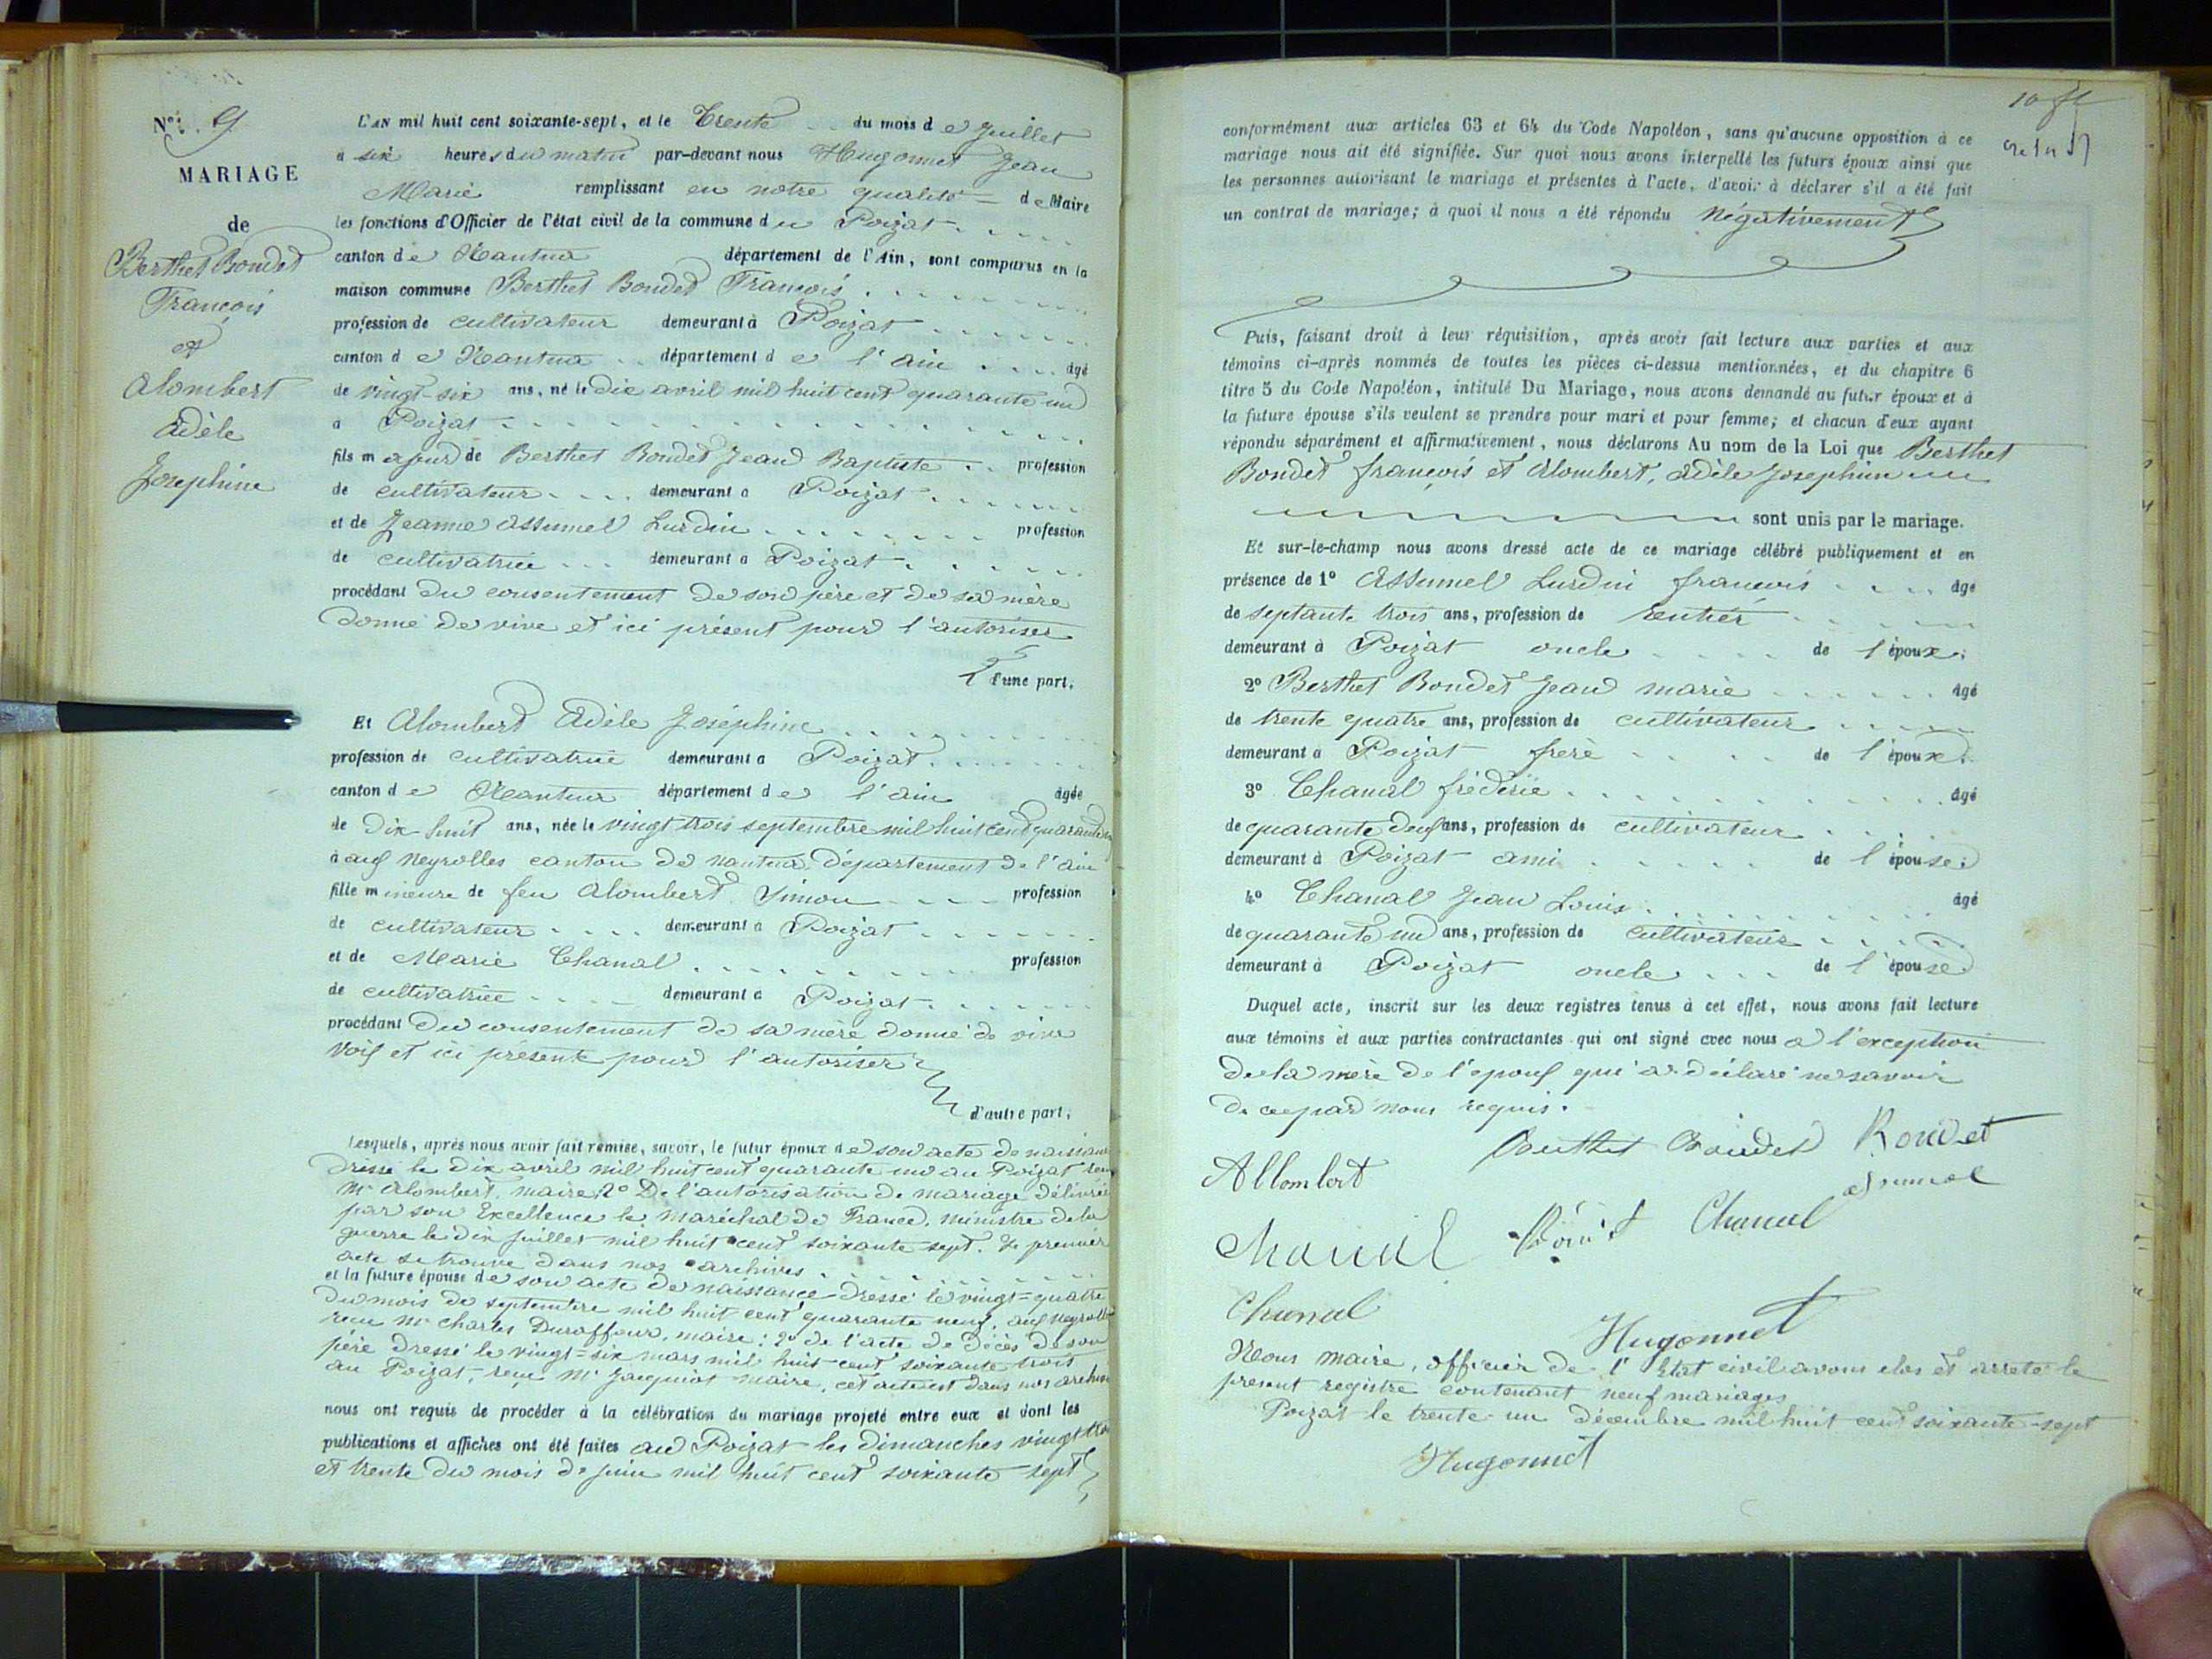 N° 9
MARIAGE
de
Berthet Bondet
François
et
Alombert
Adèle
Josephine
L'AN mil huit cent soixante-sept, et le Trente du mois de Juillet
à six heures du matin par-devant nous Hugonnet Jean
Marie remplissant en notre qualité de Maire
les fonctions d'Officier de l'état civil de la commune du Poizat
canton de Nantua département de l'Ain, sont comparus en la
maison commune Berthet Bondet François
profession de cultivateur demeurant à Poizat
canton de Nantua département de l'ain âgé
de vingt-six ans, né le dix avril mil huit cent quarante un
à Poizat
fils majeur de Berthet Bondet Jean Baptiste profession
de cultivateur demeurant à Poizat
et de Jeanne Assumel Lurdin profession
de cultivatrice demeurant à Poizat
procédant du consentement de son père et de sa mère
donné de vive et ici présent pour l'autoriser
d'une part,
Et Alombert Adèle Joséphine
profession de cultivatrice demeurant à Poizat
canton de Nantua département de l'ain âgée
de Dix-huit ans, née le vingt trois septembre mil huit cent quarante
à aux Neyrolles canton de nantua département de l'ain
fille mineure de feu Alombert Simon profession
de cultivateur demeurant à Poizat
et de Marie Chanal profession
de cultivatrice demeurant à Poizat
procédant du consentement de sa mère donné de vive
voix et ici présente pour l'autoriser
d'autre part;
Lesquels, après nous avoir fait remise, savoir, le futur époux de son acte de naissance
dressé le dix avril mil huit cent quarante un au Poizat
Mr Alombert, maire, 2° De l'autorisation de mariage délivrée
par son Excellence le maréchal de France, ministre de la
guerre le dix juillet mil huit cent soixante sept. le premier
acte se trouve dans nos archives
et la future épouse de son acte de naissance dressé le vingt=quatre
du mois de septembre mil huit cent quarante neuf, aux Neyrolles
reçu Mr Charles Duraffour, maire: 2° de l'acte de décès de son
père dressé le vingt=six mars mil huit cent soixante trois
au Poizat, reçu Mr Jacquiot maire, cet acte est dans nos archives
nous ont requis de procéder à la célébration du mariage projeté entre eux et dont les
publications et affiches ont été faites au Poizat les dimanches vingt trois
et trente du mois de juin mil huit cent soixante sept
conformément aux articles 63 et 64 du Code Napoléon, sans qu'aucune opposition à ce
mariage nous ait été signifiée. Sur quoi nous avons interpellé les futurs époux ainsi que
les personnes autorisant le mariage et présentes à l'acte, d'avoir à déclarer s'il a été fait
un contrat de mariage; à quoi il nous a été répondu Négativement
Puis, faisant droit à leur réquisition, après avoir fait lecture aux parties et aux
témoins ci-après nommés de toutes les pièces ci-dessus mentionnées, et du chapitre 6
titre 5 du Code Napoléon, intitulé Du Mariage, nous avons demandé au futur époux et à
la future épouse s'ils veulent se prendre pour mari et pour femme; et chacun d'eux ayant
répondu séparément et affirmativement, nous déclarons Au nom de la Loi que Berthet
Bondet françois et Alombert, Adèle Josephine
sont unis par le mariage.
Et sur-le-champ nous avons dressé acte de ce mariage célébré publiquement et en
présence de 1° Assumel Lurdin françois âgé
de septante trois ans, profession de rentier
demeurant à Poizat oncle de l'époux.
2° Berthet Bondet Jean marie âgé
de trente quatre ans, profession de cultivateur
demeurant à Poizat frère de l'époux
3° Chanal frédéric âgé
de quarante deux ans, profession de cultivateur
demeurant à Poizat ami de l'épouse
4° Chanal Jean Louis âgé
de quarante un ans, profession de cultivateur
demeurant à Poizat oncle de l'épouse
Duquel acte, inscrit sur les deux registres tenus à cet effet, nous avons fait lecture
aux témoins et aux parties contractantes qui ont signé avec nous à l'exception
de la mère de l'époux qui a déclaré ne savoir
de ce par nous requis.
Berthet Bondet Rondet
Allombert
Chanal Chanal
Chanal
Hugonnet
Nous maire, officier de l'Etat civil avons clos et arreté le
present registre contenant neuf mariages
Poizat le trente-un décembre mil huit cent soixante-sept
Hugonnet